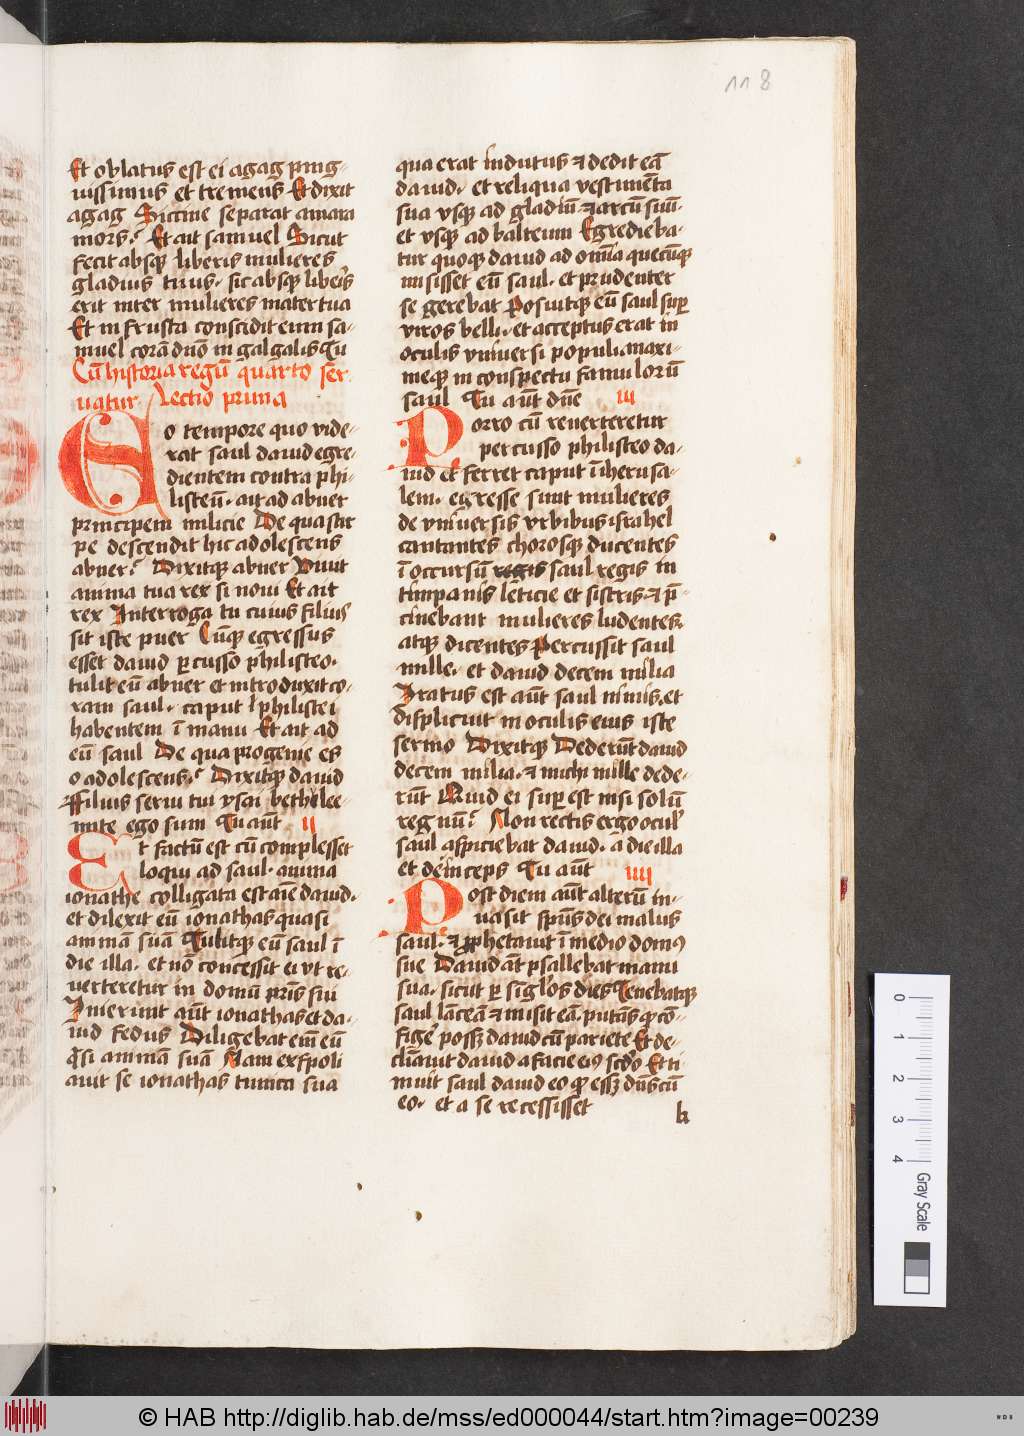 118
Et oblatus est ei agag ping-
uissimus et tremens Et dixit
agag Siccine separat amara
mors? Et ait samuel Sicut
fecit absqꝫ liberis mulieres
gladius tuus. sic absqꝫ liberis
erit inter mulieres mater tua
Et in frusta conscidit eum sa-
muel corā dn̄o in galgalis Tu
Cū historia regū quarto ser-
uatur Lectio prima
EO tempore quo vide-
rat saul dauid egre-
dientem contra phi-
listeū. ait ad abner
principem milicie De qua stir
pe descendit hic adolescens
abner? Dixitqꝫ abner Viuit
anima tua rex si noui Et ait
rex Interroga tu cuius filius
sit iste puer Cūqꝫ egressus
esset dauid ꝑcusso philisteo.
tulit eū abner et introduxit co-
ram saul. caput philistei
habentem ī manu Et ait ad
eū saul De qua progenie es
o adolescens? Dixitqꝫ dauid
Filius serui tui ysai bethlee-
mite ego sum Tu aūt II
Et factū est cū complesset
loqui ad saul. anima
ionathe colligata est aīe dauid.
et dilexit eū ionathas quasi
animā suā Tulitqꝫ eū saul ī
die illa. et nō concessit ei vt re-
uerteretur in domū pr̄is sui
Inierunt aūt ionathas et da-
uid fedus Diligebat em̄ eū
q̄si animā suā Nam expoli
auit se ionathas tunica sua
qua erat indutus ⁊ dedit eā
dauid. et reliqua vestimēta
sua vsqꝫ ad gladiū ⁊ arcū suū.
et vsqꝫ ad balteum Egredieba-
tur quoqꝫ dauid ad om̄ia quecūqꝫ
misisset eū saul. et prudenter
se gerebat Posuitqꝫ eū saul suꝑ
viros belli. et acceptus erat in
oculis vniuersi populi. maxi-
meqꝫ in conspectu famulorū
saul Tu aūt dn̄e III
Porro cū reuerteretur
percusso philisteo da-
uid et ferret caput ī iherusa-
lem. egresse sunt mulieres
de vniuersis vrbibus israhel
cantantes chorosqꝫ ducentes
ī occursū regis saul regis in
timpanis leticie et sistris. ⁊ p̄-
cinebant mulieres ludentes.
atqꝫ dicentes Percussit saul
mille. et dauid decem milia
Iratus est aūt saul nimis. et
displicuit in oculis eius iste
sermo Dixitqꝫ Dederūt dauid
decem milia. ⁊ michi mille dede-
rūt Quid ei suꝑest nisi solū
regnū? Non rectis ergo ocul'
saul aspiciebat dauid. a die illa
et deinceps Tu aūt IIII
Post diem aūt alterū in-
uasit spūs dei malus
saul. ⁊ ꝓphetauit ī medio domus
sue Dauid aūt psallebat manu
sua. sicut ꝑ sīglos dies Tenebatqꝫ
saul lāceā ⁊ misit eā. putās ꝙ cō-
figē possꝫ dauid cū pariete Et de-
clinauit dauid a facie eiꝰ scd'o Et ti-
muit saul dauid eo ꝙ essꝫ dn̄s cū
eo. et a se recessisset
0 1 2 3 4 Gray Scale
© HAB http://diglib.hab.de/mss/ed000044/start.htm?image=00239